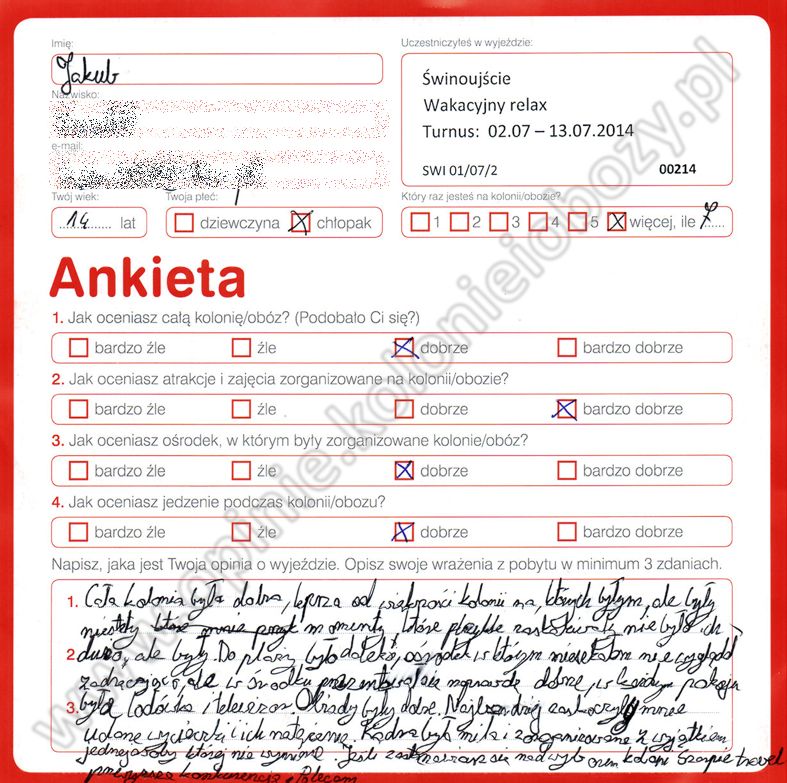 Imię:
Jakub
Nazwisko:
e-mail:
Uczestniczyłeś w wyjeździe:
Świnoujście
Wakacyjny relax
Turnus: 02.07 – 13.07.2014
SWI 01/07/2 00214
Twój wiek:
14 lat
Twoja płeć:
dziewczyna chłopak
Który raz jesteś na kolonii/obozie?
1 2 3 4 5 więcej, ile 7
Ankieta
1. Jak oceniasz całą kolonię/obóz? (Podobało Ci się?)
bardzo źle źle dobrze bardzo dobrze
2. Jak oceniasz atrakcje i zajęcia zorganizowane na kolonii/obozie?
bardzo źle źle dobrze bardzo dobrze
3. Jak oceniasz ośrodek, w którym były zorganizowane kolonie/obóz?
bardzo źle źle dobrze bardzo dobrze
4. Jak oceniasz jedzenie podczas kolonii/obozu?
bardzo źle źle dobrze bardzo dobrze
Napisz, jaka jest Twoja opinia o wyjeździe. Opisz swoje wrażenia z pobytu w minimum 3 zdaniach.
1. Cała kolonia była dobra, lepsza od większości kolonii na, których byłym, ale były
niestety momenty, które nie było ich
2. dużo, ale były. Do plaży było daleko, ośrodek w którym nie wyglądał
ale w środku naprawdę dobrze, w każdym pokoju
3. była lodówka i telewizor. Obiady były dobre. Najbardziej zaskoczyły mnie
udane wycieczki i ich
jednej osoby której nie wymienię. Jeśli zastanawiasz się nad wyborem kolonii Szarpie travel
Polecam
www.opinie.kolonieiobozy.pl